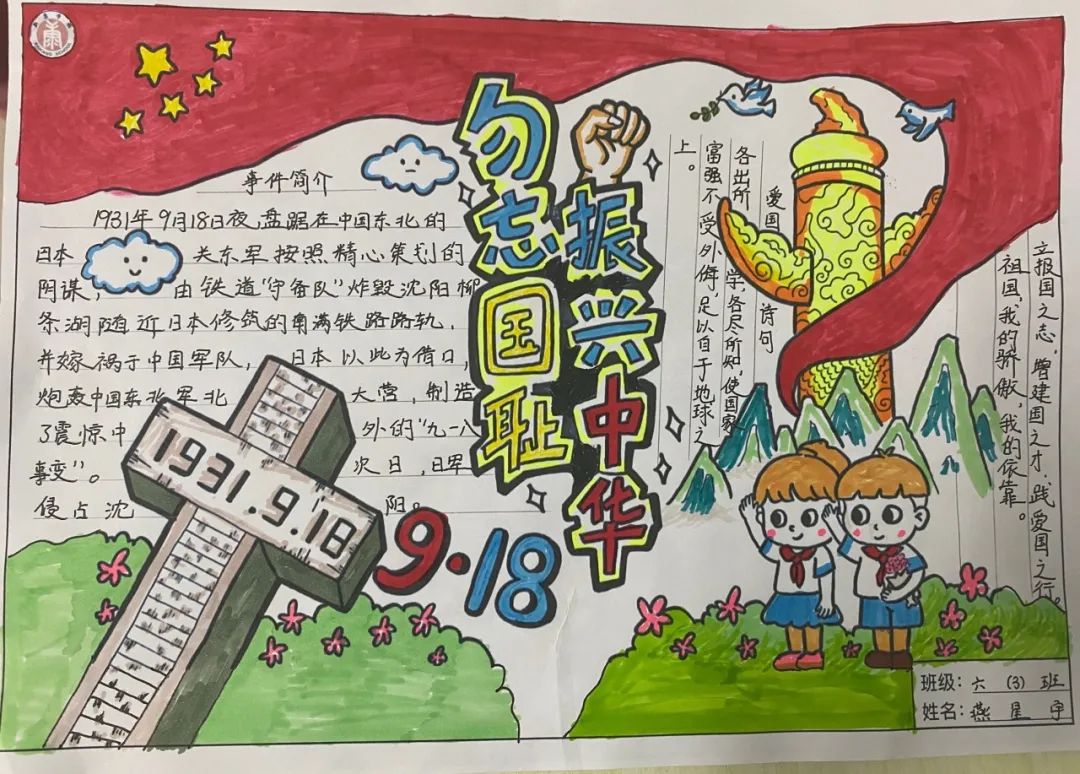 勿忘国耻
振兴中华
事件简介
1931年9月18日夜,盘踞在中国东北的
日本关东军按照精心策划的
阴谋,由铁道“守备队”炸毁沈阳柳
条湖附近日本修筑的南满铁路路轨,
并嫁祸于中国军队,日本以此为借口,
炮轰中国东北军北大营,制造
了震惊中外的“九一八
事变”。次日,日军
侵占沈阳。
1931.9.18
9·18
爱国诗句
各出所学,各尽所知,使国家
富强不受外侮,足以自于地球之
上。
立报国之志,增建国之才,践爱国之行。
祖国,我的骄傲,我的依靠。
班级:六(3)班
姓名:燕星宇